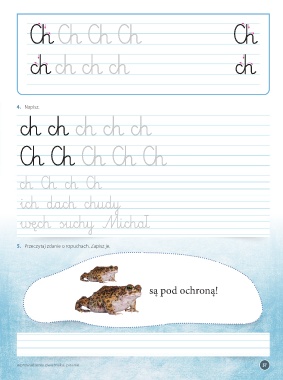 Ch Ch Ch Ch Ch
ch ch ch ch ch
4. Napisz.
ch ch ch ch ch
Ch Ch Ch Ch Ch
ch Ch ch Ch
ich dach chudy
węch suchy Michał
5. Przeczytaj zdanie o ropuchach. Zapisz je.
są pod ochroną!